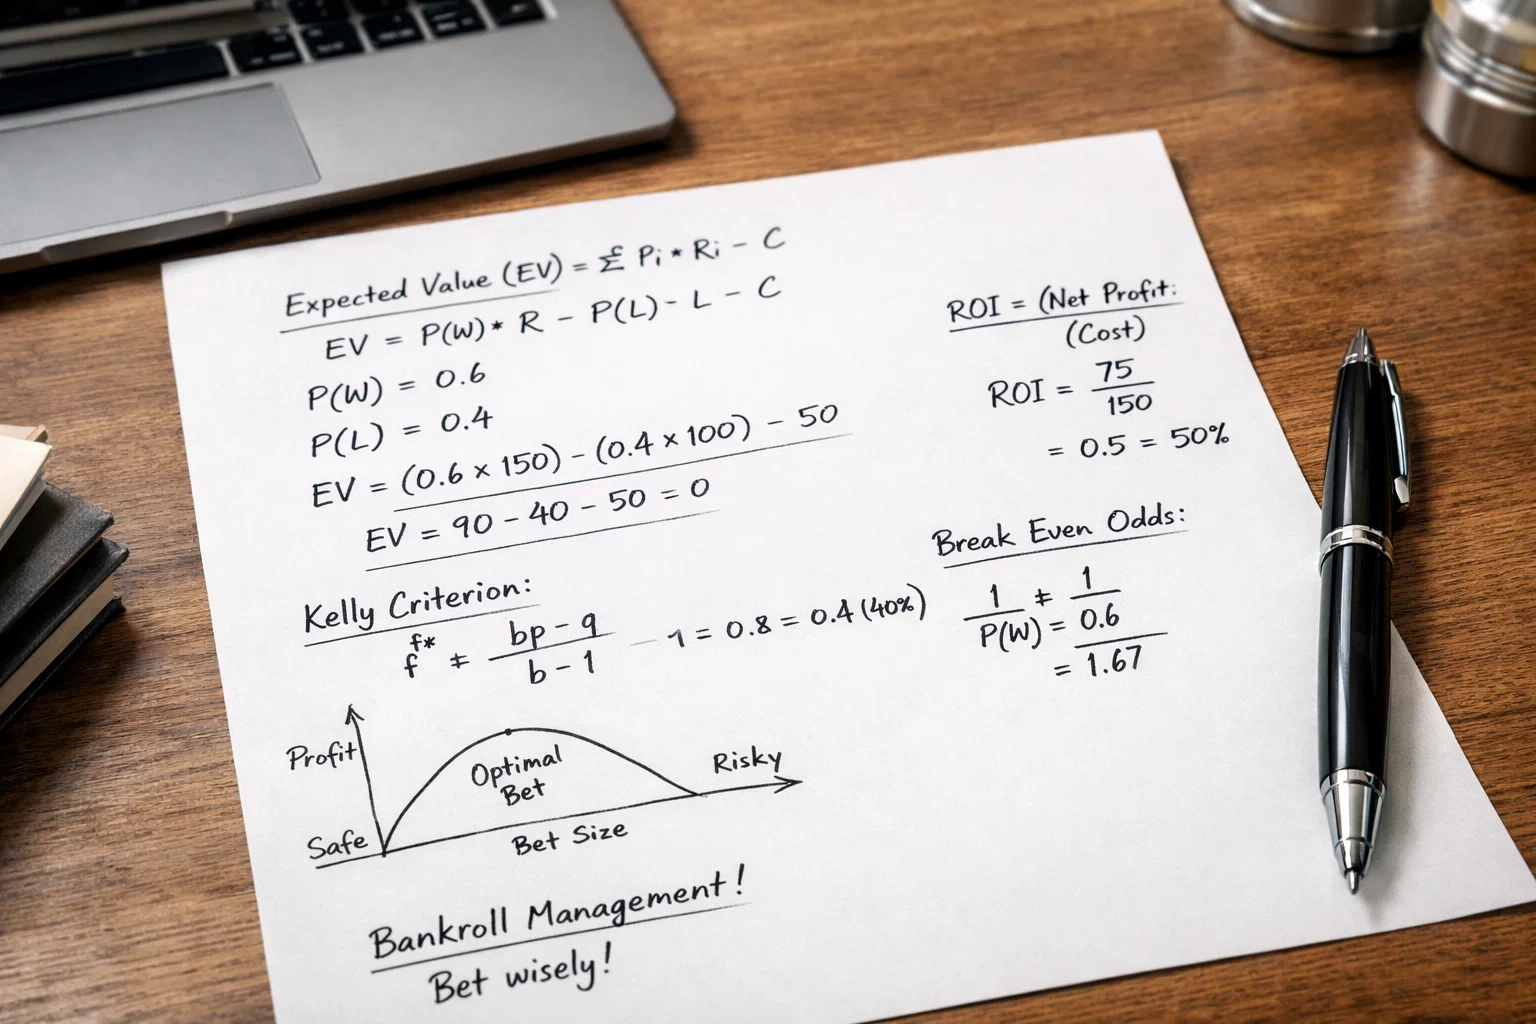 Expected Value (EV) = Σ Pi * Ri - C
EV = P(W) * R - P(L) - L - C
P(W) = 0.6
P(L) = 0.4
EV = (0.6 × 150) - (0.4 × 100) - 50
EV = 90 - 40 - 50 = 0
ROI = (Net Profit:
(Cost)
ROI = 75
150
= 0.5 = 50%
Kelly Criterion:
f*
f ≠ bp - q
b - 1
1 = 0.8 = 0.4 (40%)
Break Even Odds:
1 ≠ 1
P(W) = 0.6
= 1.67
Profit
Optimal
Bet
Risky
Safe
Bet Size
Bankroll Management!
Bet wisely!